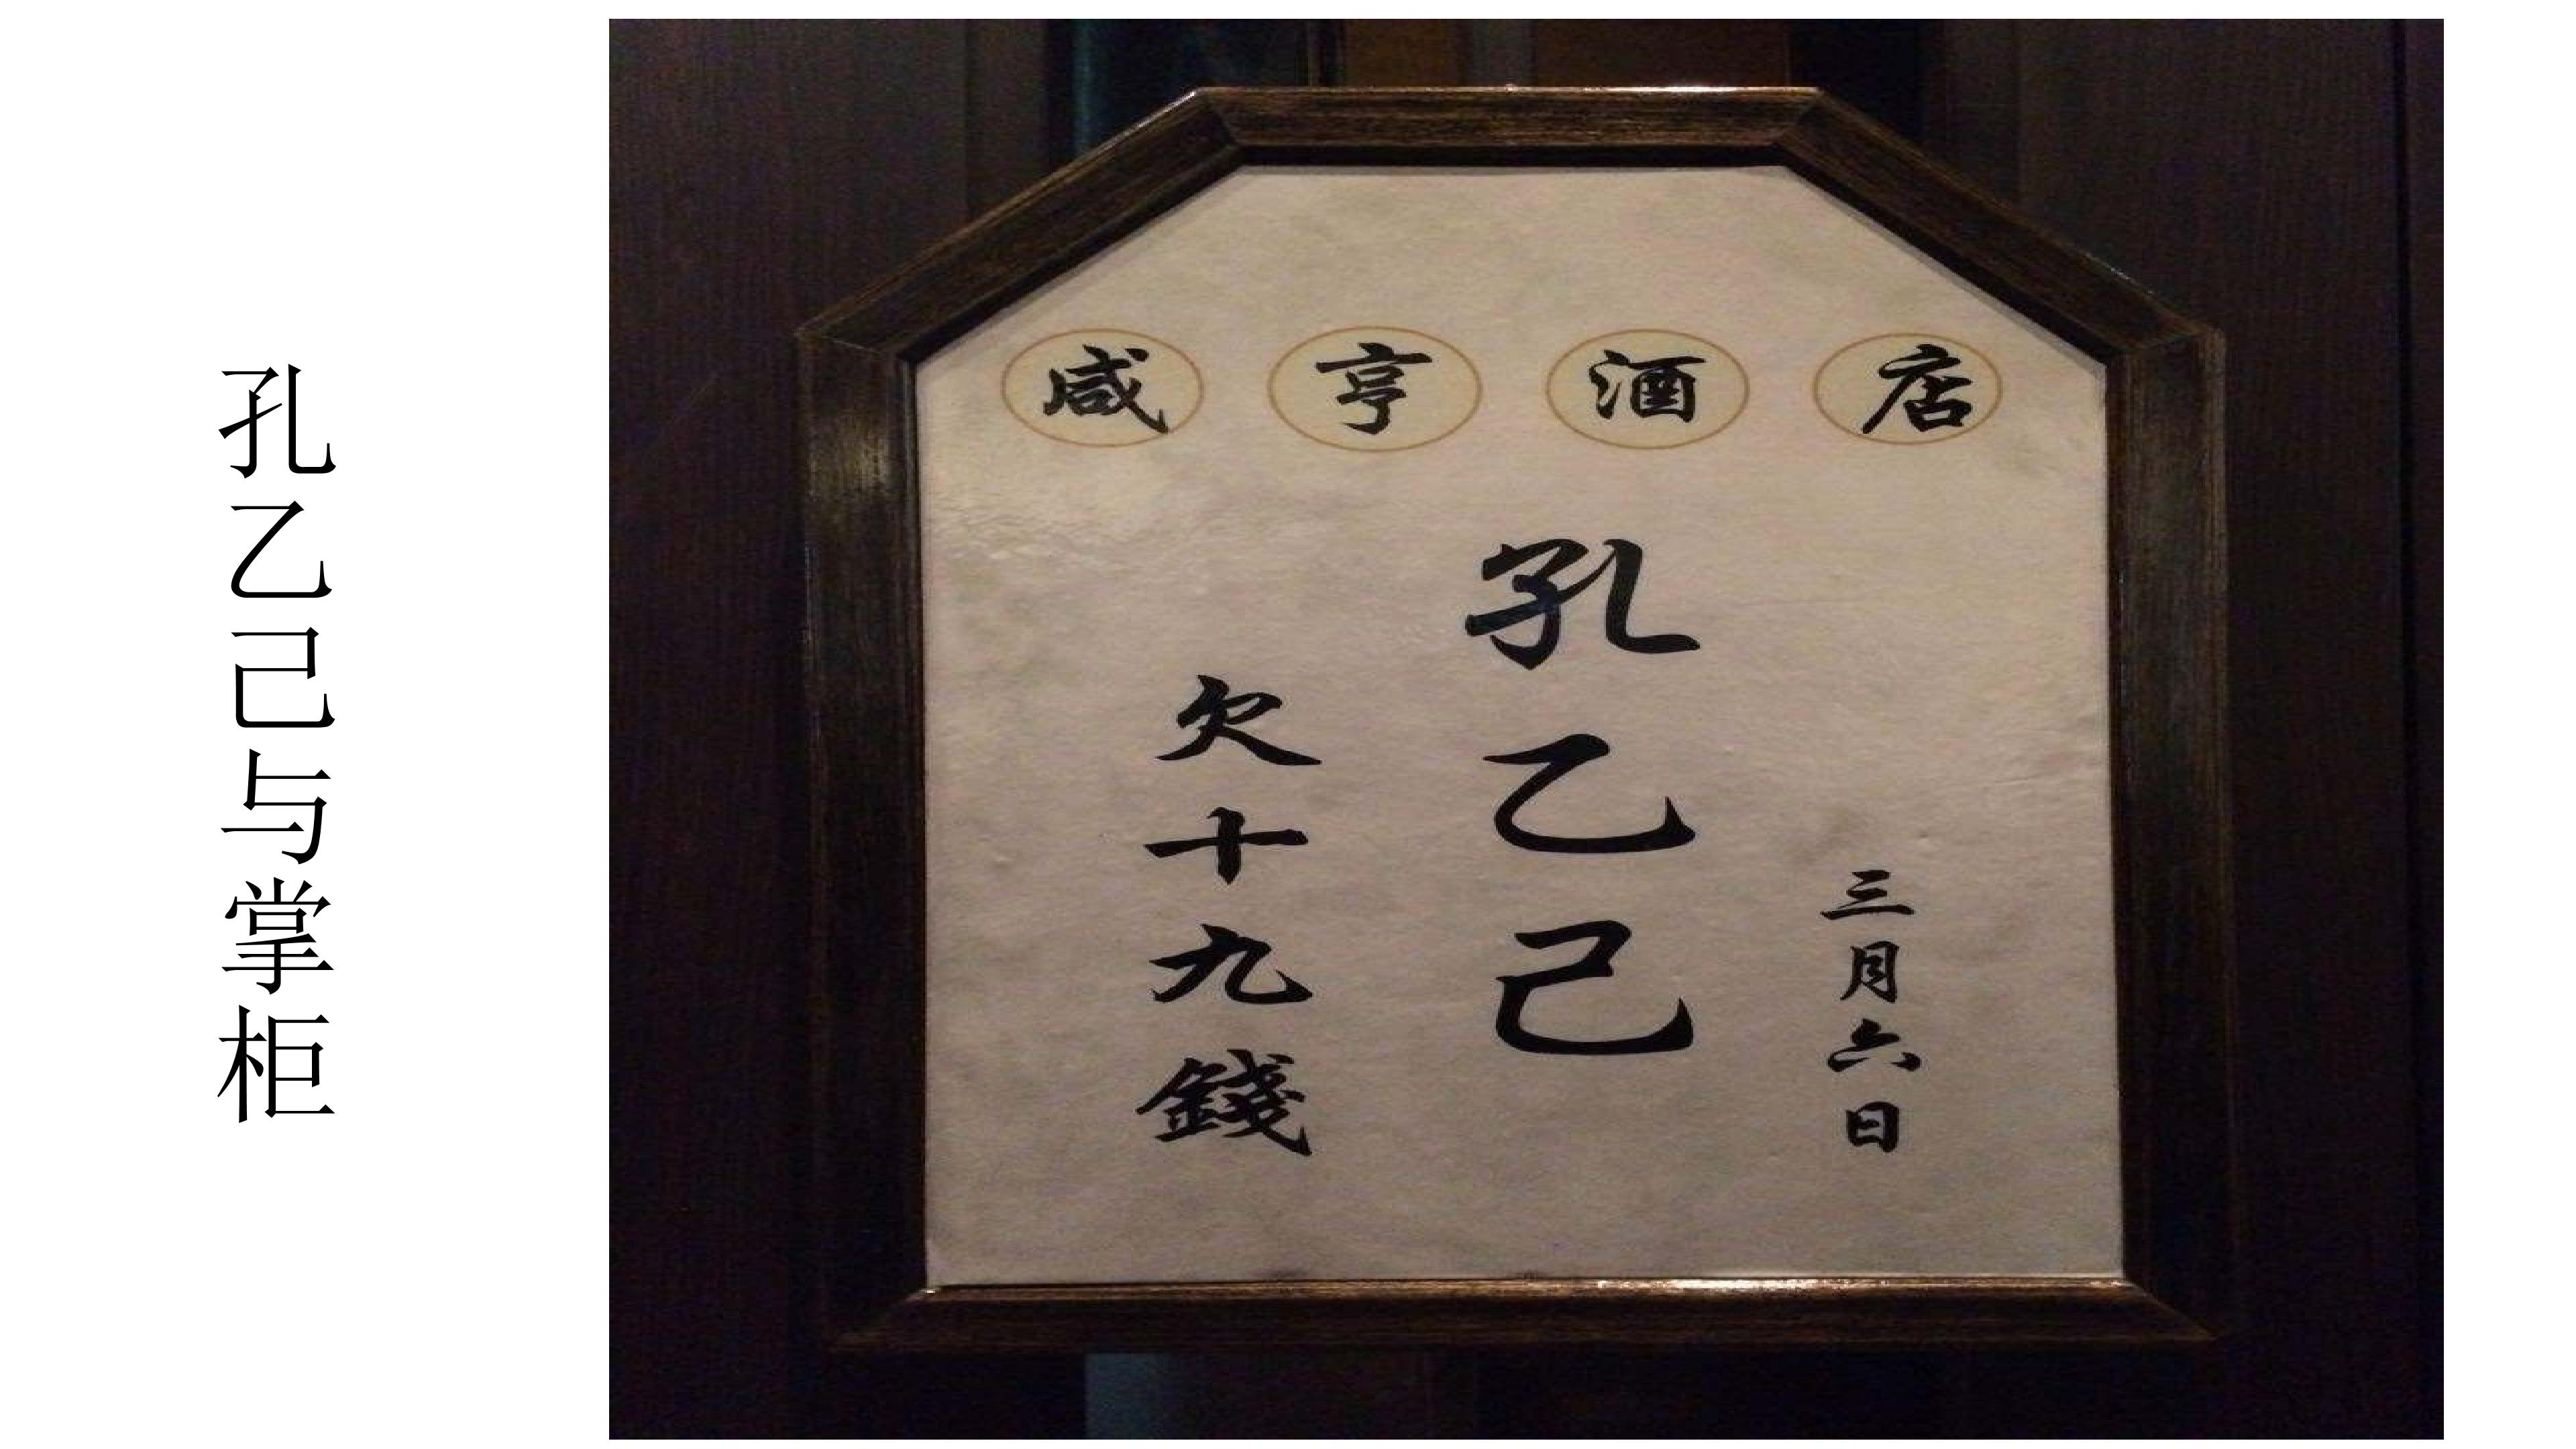 孔乙己与掌柜
咸亨酒店
三月六日
孔乙己
欠十九錢